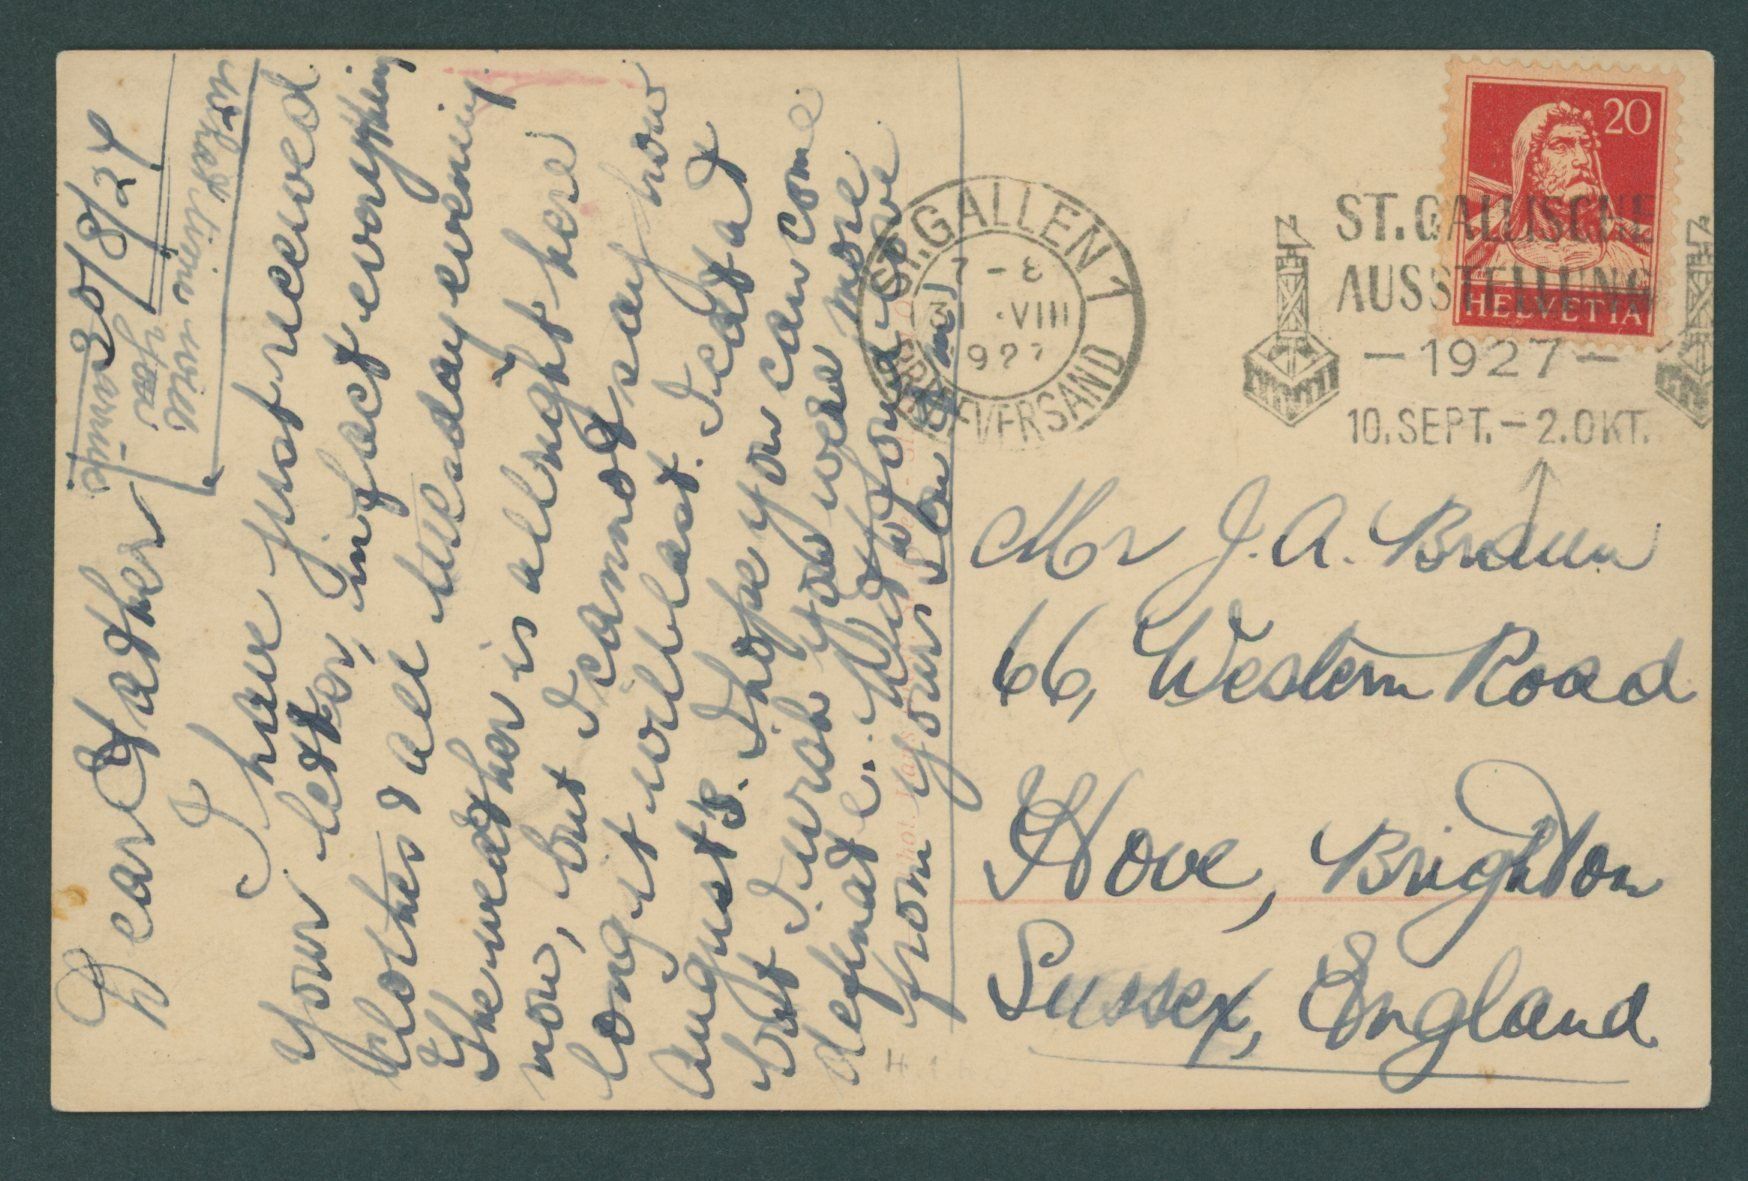 30/8/27
Dear Father
I have just received
your letter, in fact everything
clothes & all tuesday evening
The weather is allright here
now, but I cannot say how
long it will last. I eat at
August's. I hope you can come
but I wish you were more
definate.
from your Son
what time will
you arrive
ST. GALLEN 1
7-8
31.VIII
1927
BRIEFVERSAND
ST. GALLISCHE
AUSSTELLUNG
-1927-
10. SEPT. - 2. OKT.
20
HELVETIA
Mr J. A. Braun
66, Western Road
Hove, Brighton
Sussex, England